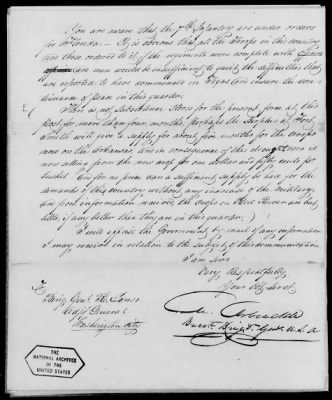 You are aware that the 7th Infantry are under orders
for Florida. — It is obvious that all the troops in this country
and those ordered to it, if the regiments were complete with
and men would be insufficient to quiet the difficulties that
are reported to have commenced in Texas and ensure the con-
tinuance of peace in this quarter.
There is not Subsistence Stores for the present force at this
post for more than four months, perhaps the surplus at Fort
Smith will give a supply for about five months for the troops
now on the Arkansas, and in consequence of the drought corn is
now selling from the new crop for one dollar and fifty cents per
bushel nor for us from can a sufficient supply be had for the
demands of this country without any increase of the military.
and from information received, the crops on Red River are but
little if any better than they are in this quarter. )
I will advise the Government by mail of any information
I may receive in relation to the subject of this communication
I am Sir
Very Respectfully
Your Obt Servt
M. Arbuckle
Brevt Brigr. Genl. U.S.A
To Brig. Genl. R. Jones
Adjt General
Washington City
THE
NATIONAL ARCHIVES
OF THE
UNITED STATES